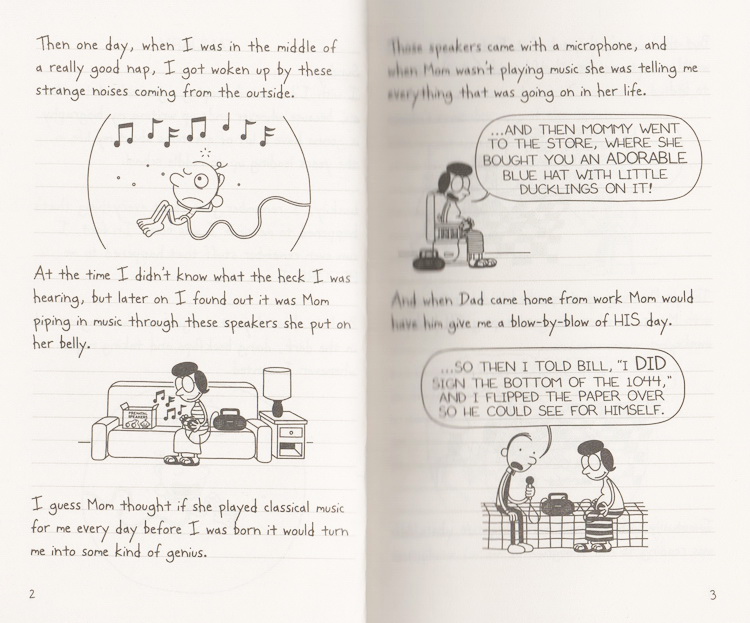 Then one day, when I was in the middle of
a really good nap, I got woken up by these
strange noises coming from the outside.
At the time I didn't know what the heck I was
hearing, but later on I found out it was Mom
piping in music through these speakers she put on
her belly.
PRENATAL
SPEAKERS
I guess Mom thought if she played classical music
for me every day before I was born it would turn
me into some kind of genius.
2
Those speakers came with a microphone, and
when Mom wasn't playing music she was telling me
everything that was going on in her life.
...AND THEN MOMMY WENT
TO THE STORE, WHERE SHE
BOUGHT YOU AN ADORABLE
BLUE HAT WITH LITTLE
DUCKLINGS ON IT!
And when Dad came home from work Mom would
have him give me a blow-by-blow of HIS day.
...SO THEN I TOLD BILL, "I DID
SIGN THE BOTTOM OF THE 1044,"
AND I FLIPPED THE PAPER OVER
SO HE COULD SEE FOR HIMSELF.
3